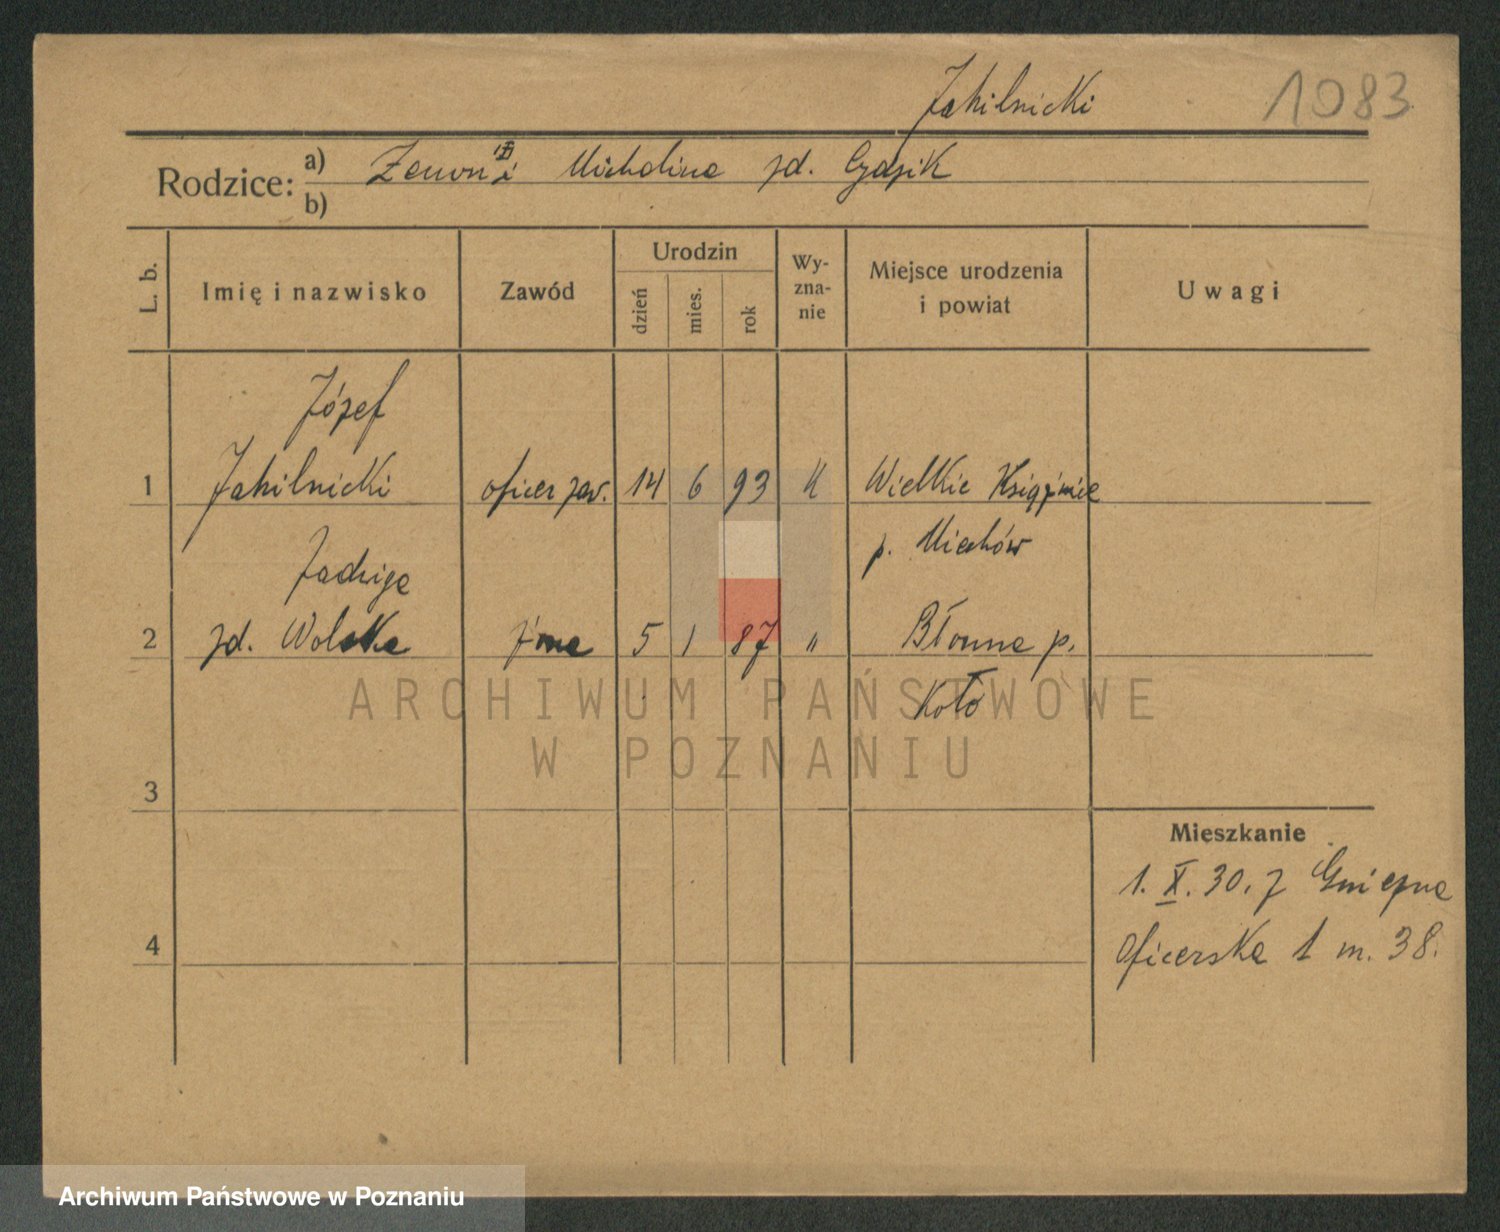 Jakilnicki 1083
Rodzice: a) Zenon i Michalina zd. Gzdzik
b)
L. b. Imię i nazwisko Zawód Urodzin dzień mies. rok Wy-zna-nie Miejsce urodzenia i powiat Uwagi
Józef
1 Jakilnicki oficer zaw. 14 6 93 k Wielkie Książnice
p. Miechów
Jadwiga
2 zd. Wolska ż. na 5 1 87 " Błonna p.
Koło
3
Mieszkanie
1. X. 30. z Gniezna
4 Oficerska 1 m. 38.
ARCHIWUM PAŃSTWOWE
W POZNANIU
Archiwum Państwowe w Poznaniu